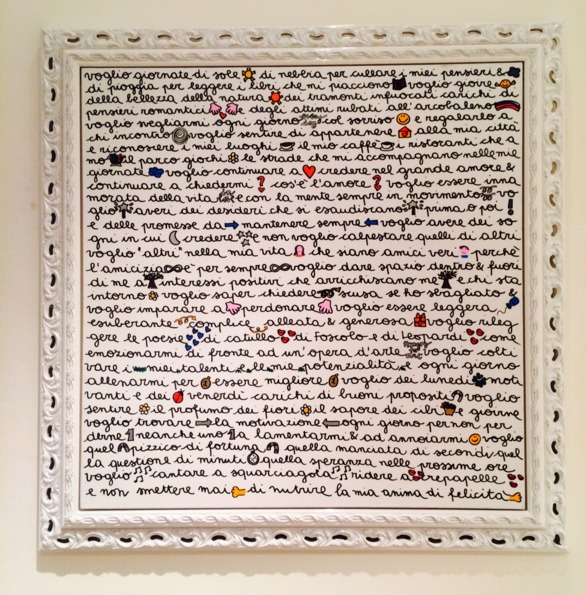 voglio giornate di sole di nebbia per cullare i miei pensieri &
di pioggia per leggere i libri che mi piacciono voglio giove
della bellezza della natura dei tramonti infuocati carichi di
pensieri romantici degli attimi rubati all'arcobaleno
voglio svegliarmi ogni giorno col sorriso e regalarlo a
chi incontro voglio sentire di appartenere alla mia città
e riconoscere i miei luoghi il mio caffè i ristoranti che a
mo il parco giochi le strade che mi accompagnano nelle mie
giornate voglio continuare a credere nel grande amore &
continuare a chiedermi cos'è l'amore voglio essere inna
morata della vita e con la mente sempre in movimento vo
glio averi dei desideri che si esaudiscano prima o poi
e delle promesse da mantenere sempre voglio avere dei so
gni in cui credere e non voglio calpestare quelli di altri
voglio "altri" nella mia vita che siano amici veri perchè
l'amicizia è per sempre voglio dare spazio dentro & fuori
di me a interessi positivi che arricchiscano me e chi sta
intorno voglio saper chiedere scusa se ho sbagliato &
voglio imparare a perdonare voglio essere leggera
esuberante complice alleata & generosa voglio rileg
gere le poesie di catullo di Foscolo e di Leopardi come
emozionarmi di fronte ad un'opera d'arte voglio colti
vare i miei talenti e le mie potenzialità e ogni giorno
allenarmi per essere migliore voglio dei lunedì moti
vanti e dei venerdì carichi di buoni propositi voglio
sentire il profumo dei fiori il sapore dei cibi e giorne
voglio trovare la motivazione ogni giorno per non per
derne 1 neanche uno 1 a lamentarmi & ad annoiarmi voglio
quel pizzico di fortuna quella manciata di secondi quel
la questione di minuti quella speranza nelle prossime ore
voglio cantare a squarciagola ridere a crepapelle
e non smettere mai di nutrire la mia anima di felicità